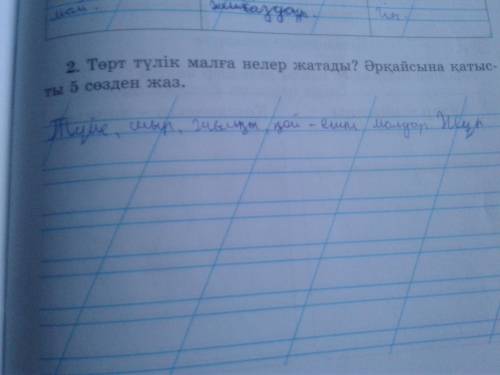 мал.
2. Төрт түлік малға нелер жатады? Әрқайсына қатыс-
ты 5 сөзден жаз.
Түйе, сиыр, жылқы, қой - ешкі малдар